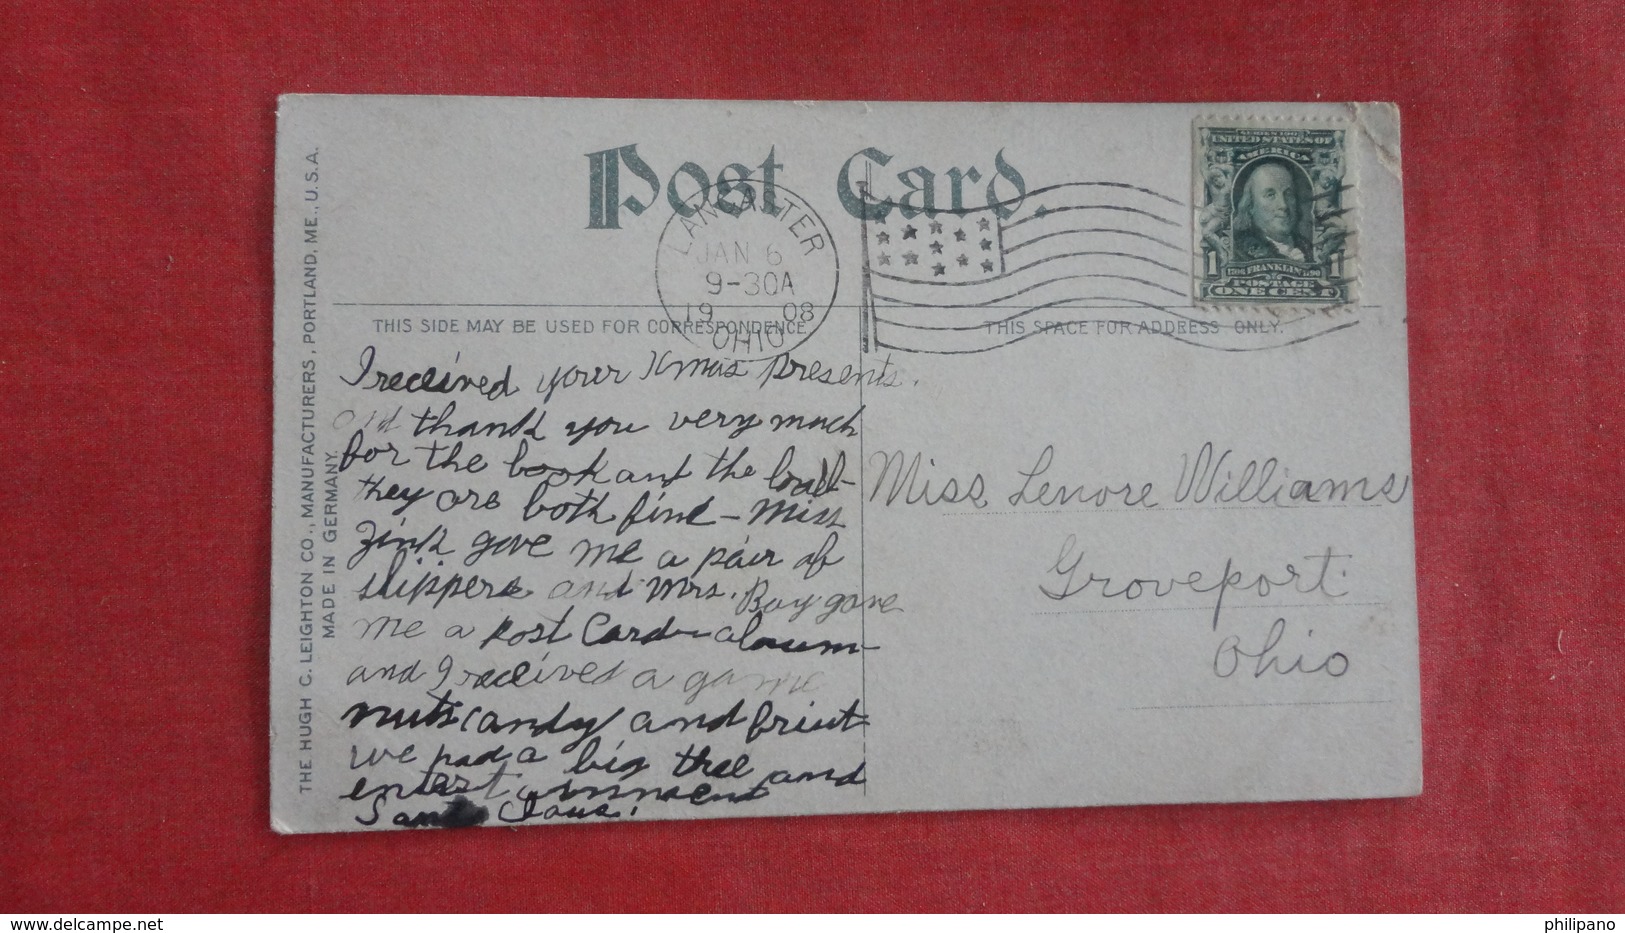 Post Card.
LANCASTER
JAN 6
9-30A
1908
OHIO
SERIES 1902
UNITED STATES OF
AMERICA
1 1706 FRANKLIN 1790 1
POSTAGE
ONE CENT
THIS SIDE MAY BE USED FOR CORRESPONDENCE
THIS SPACE FOR ADDRESS ONLY.
THE HUGH C. LEIGHTON CO., MANUFACTURERS, PORTLAND, ME., U.S.A.
MADE IN GERMANY.
I received your Xmas Presents.
and thank you very much
for the book and the
they are both fine - Miss
Zink gave me a pair of
slippers and Mrs. Bay gave
me a post Card album
and I received a game
nuts candy and friut
we had a big tree and
Santa Claus.
Miss Lenore Williams
Groveport
Ohio
philipano